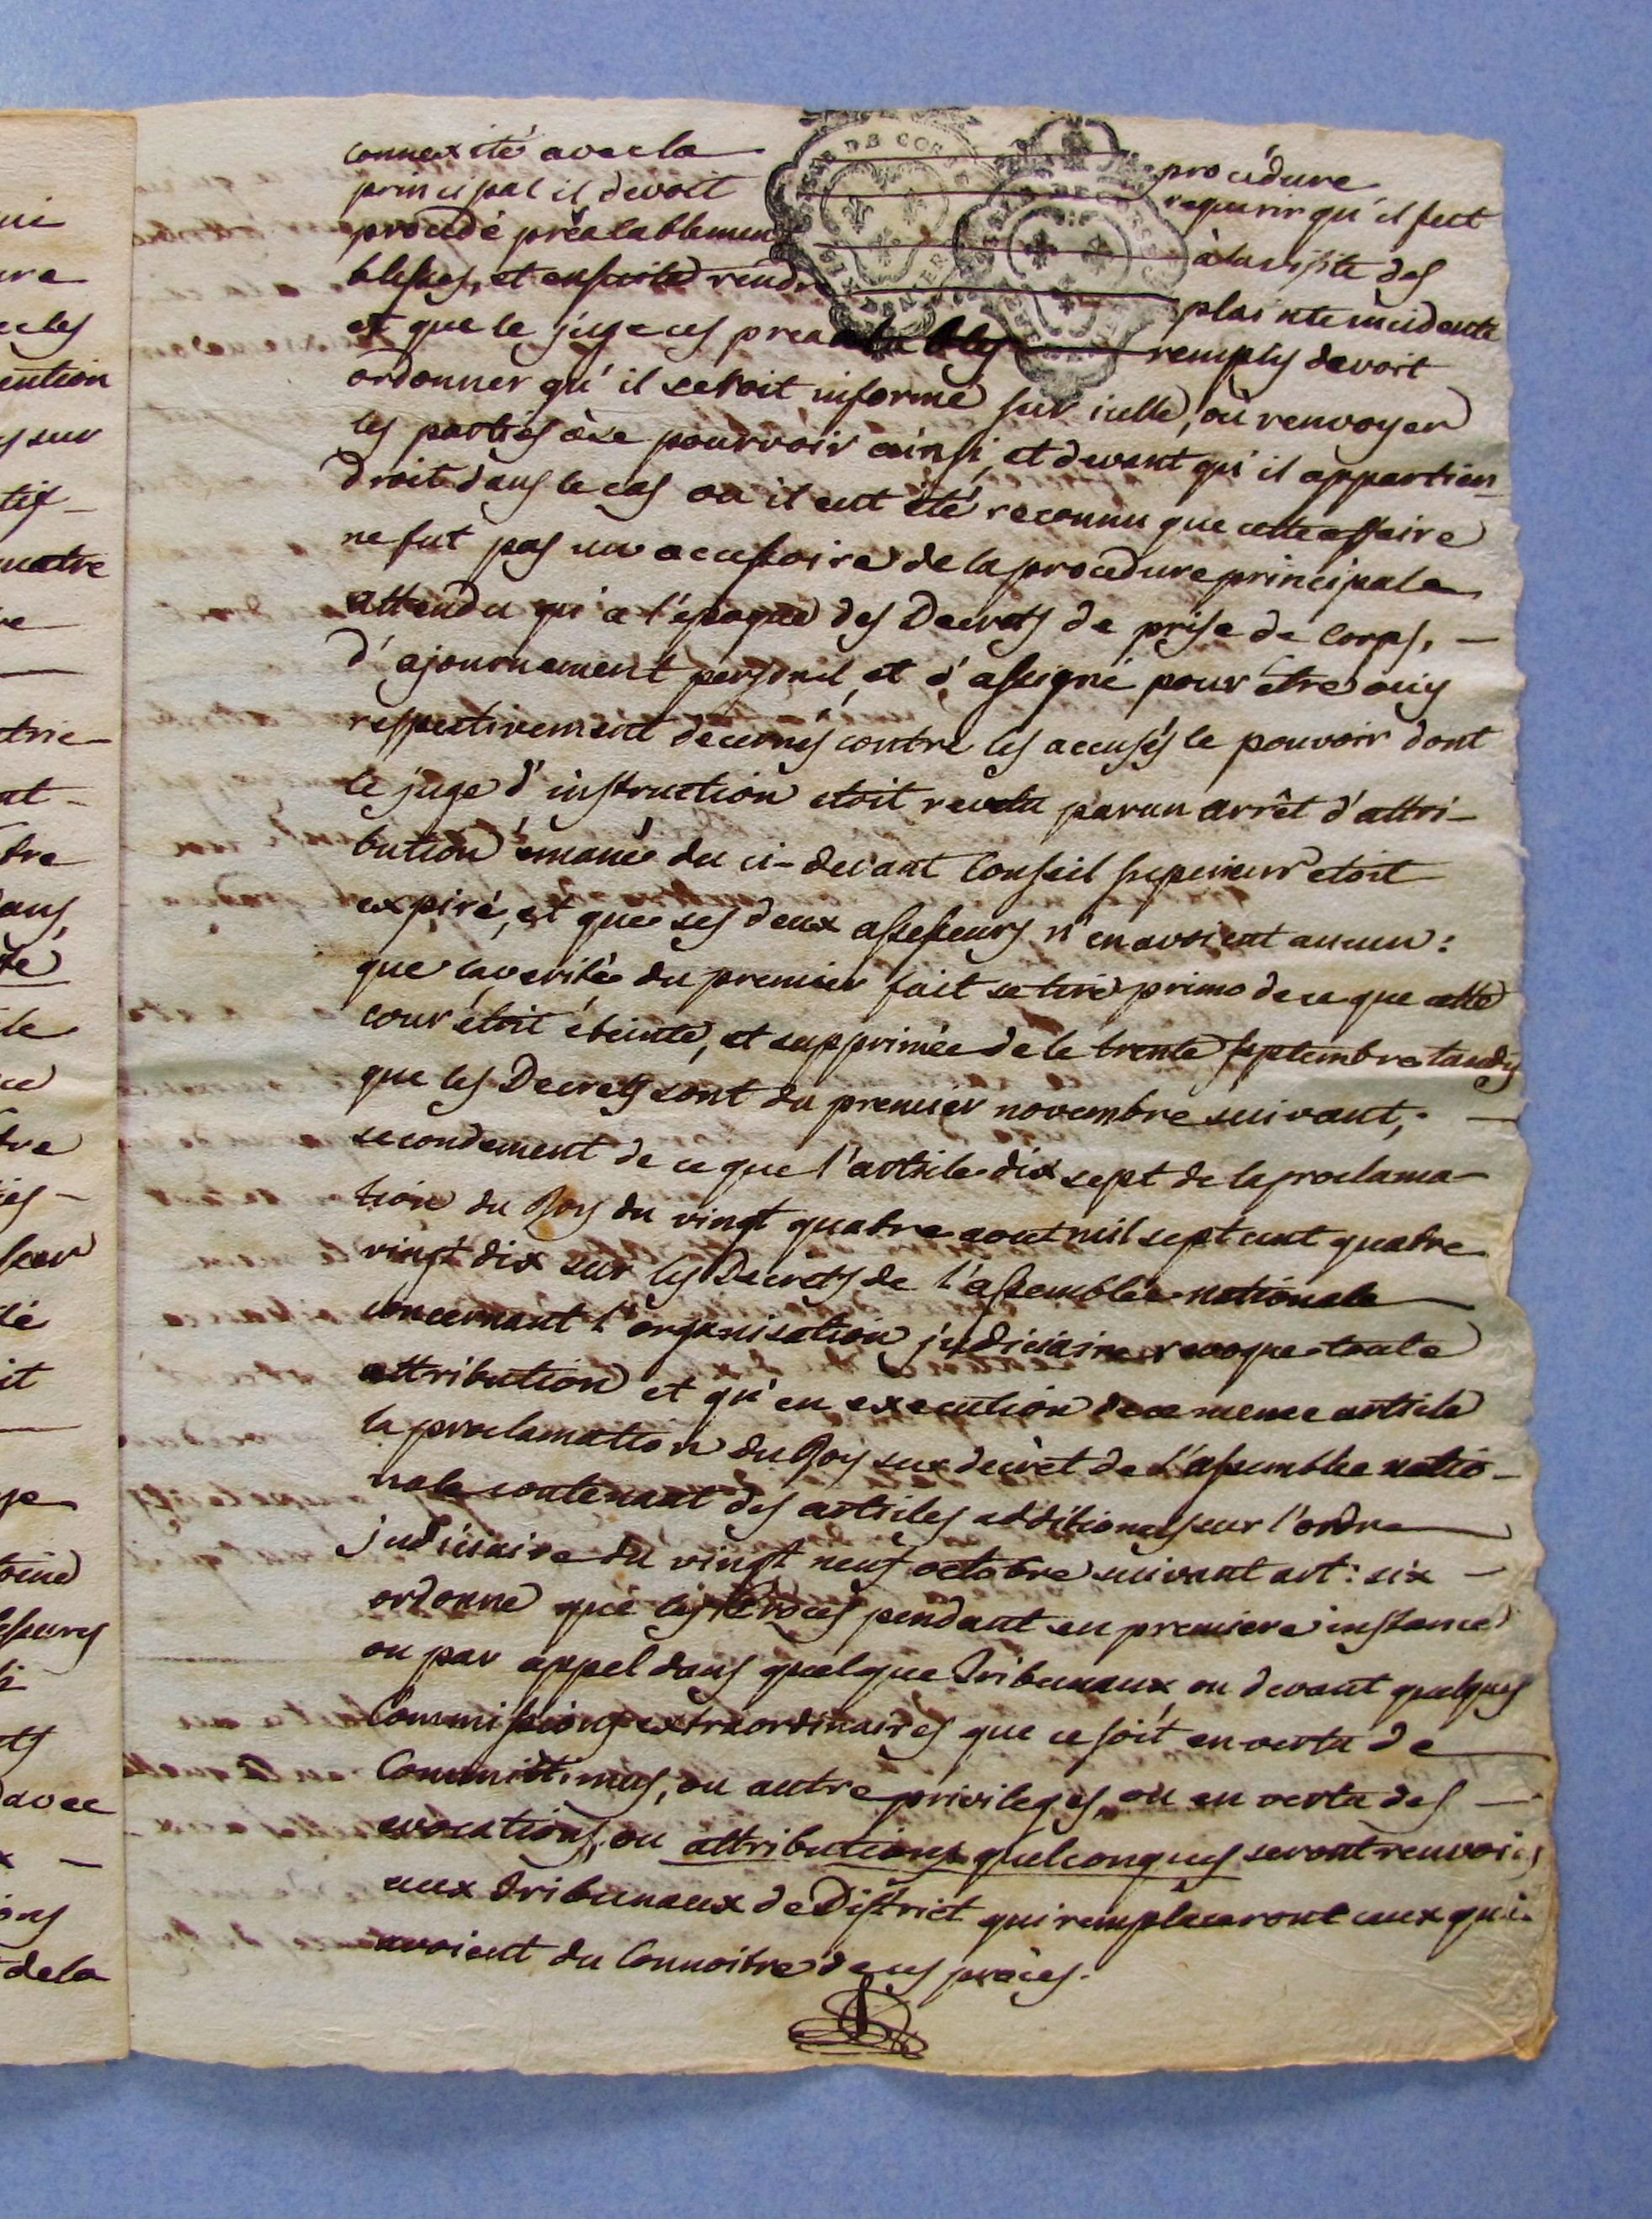 connexité avec la procédure
principal il devoit requerir qu'il fut
procedé prèalablement à la visite des
blessés, et ensuite rendre plainte incidente
et que le juge ces prealables remplis devoit
ordonner qu'il seroit informé sur icelle, où renvoyer
les parties à se pourvoir ainsi, et devant qu'il appartien-
droit dans le cas ou il eut été reconnu que cette affaire
ne fut pas un accessoire de la procedure principale
attendu qu'a l'époque des Decrets de prise de Corps, —
d'ajournement personel, et d'assigné pour être ouis
respectivement decernés contre les accusés le pouvoir dont
le juge d'instruction etoit revetu par un arrêt d'attri-
bution émané du ci-devant Conseil superieur etoit
expiré, et que ses deux assesseurs n'en avoient aucun :
que la verité du premier fait se tire primo de ce que cette
cour étoit éteinte, et supprimée de le trente septembre tandis
que les Decrets sont du premier novembre suivant, —
secondement de ce que l'article dix sept de la proclama-
tion du Roy du vingt quatre aout mil sept cent quatre
vingt dix sur les Decrets de l'assemblée nationale
concernant l'organisation judiciaire revoque toute
attribution et qu'en execution de ce meme article
la proclamation du Roy sur decret de l'assemblee natio-
nale contenant des articles additionels sur l'ordre
judiciaire du vingt neuf octobre suivant art: six —
ordonne que les Procès pendant en premiere instance
ou par appel dans quelque Tribunaux, ou devant quelques
Commissions extraordinaires que ce soit en vertu de
Committimus, ou autre privileges, ou en vertu des —
evocations, ou attributions quelconques seront renvoiés
aux Tribunaux de District qui remplaceront ceux qui
avoient du Connoitre de ces procès.
ui
ure
ention
sur
uatre
tre
ans,
ce
it
avec
dela